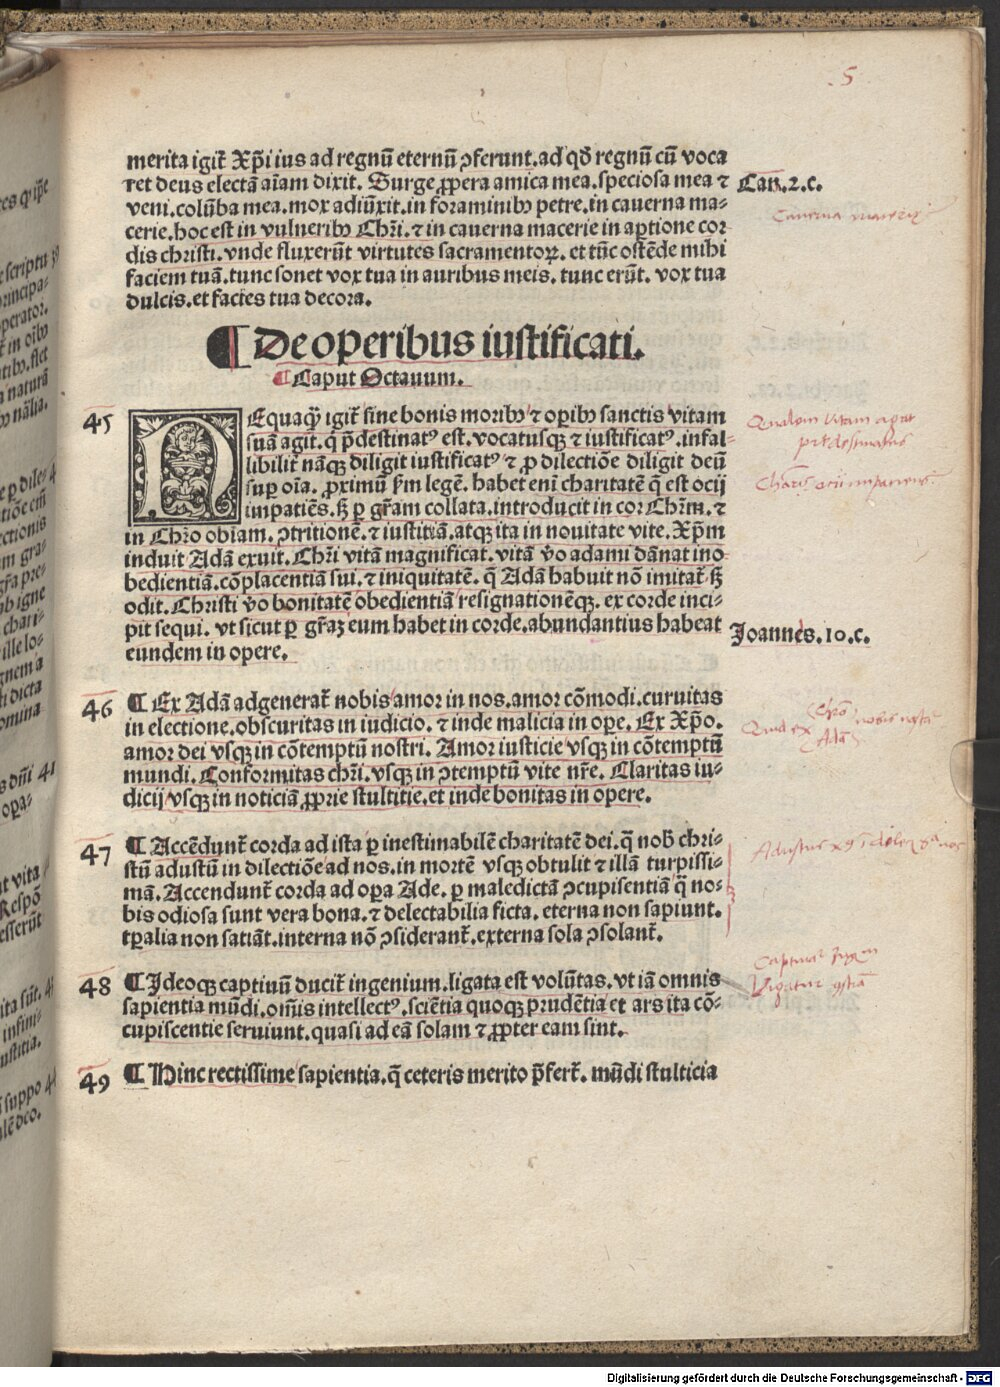 5
merita igit̃ Xp̃i ius ad regnũ eternũ ꝯferunt. ad qđ regnũ cũ voca
ret deus electã aĩam dixit. Surge ꝓpera amica mea. speciosa mea ⁊
Can. 2. c.
veni. colũba mea. mox adiũxit. in foraminibꝰ petre. in cauerna ma-
Cauerna macerię
cerie. hoc est in vulneribꝰ Chr̃i. ⁊ in cauerna macerie in aptione cor
dis christi. vnde fluxerũt virtutes sacramentoꝝ. et tũc ostẽde mihi
faciem tuã. tunc sonet vox tua in auribus meis. tunc erũt. vox tua
dulcis. et facies tua decora.
¶ De operibus iustificati.
¶ Caput Octauum.
45 NEquaq̃ igit̃ sine bonis moribꝰ ⁊ oꝑibꝰ sanctis vitam
Qualem vitam agat
suã agit. q p̃destinatꝰ est. vocatusqꝫ ⁊ iustificatꝰ. infal-
predestinatus
libilit̃ nãqꝫ diligit iustificatꝰ ⁊ ꝓ dilectiõe diligit deũ
suꝑ oĩa. ꝓximũ ẜm legẽ. habet enĩ charitatẽ q̃ est ocij
Charis ocii impatiens
impatiẽs. sꝫ ꝑ gr̃am collata. introducit in cor Chr̃m. ⁊
in Chr̃o obiam. ꝯtritionẽ. ⁊ iustitiã. atqꝫ ita in nouitate vite. Xp̃m
induit Adã exuit. Chr̃i vitã magnificat. vitã ṽo adami dãnat ino-
bedientiã. cõplacentiã sui. ⁊ iniquitatẽ. q̃ Adã habuit nõ imitat̃ sꝫ
odit. Christi ṽo bonitatẽ obedientiã resignationẽqꝫ. ex corde inci-
pit sequi. vt sicut ꝑ gr̃aꝫ eum habet in corde. abundantius habeat
Joannes. 10. c.
eundem in opere.
46 ¶ Ex Adã adgenerat̃ nobis amor in nos. amor cõmodi. curuitas
in electione. obscuritas in iudicio. ⁊ inde malicia in oꝑe. Ex Xp̃o.
Quid ex Chr̃o Adã nobis
amor dei vsqꝫ in cõtemptũ nostri. Amor iusticie vsqꝫ in cõtemptũ
mundi. Conformitas chr̃i. vsqꝫ in ꝯtemptũ vite nr̃e. Claritas iu-
dicij vsqꝫ in noticiã ꝓprie stultitie. et inde bonitas in opere.
47 ¶ Accẽdunt̃ corda ad ista ꝑ inestimabilẽ charitatẽ dei. q̃ nob̃ chri-
Adustus
stũ adustũ in dilectiõe ad nos. in mortẽ vsqꝫ obtulit ⁊ illã turpissi-
mã. Accendunt̃ corda ad oꝑa Ade. ꝑ maledictã ꝯcupisentiã q̃ no-
bis odiosa sunt vera bona. ⁊ delectabilia ficta. eterna non sapiunt.
tꝑalia non satiãt. interna nõ ꝯsiderant̃. externa sola ꝯsolant̃.
48 ¶ Ideoqꝫ captiuũ ducit̃ ingenium. ligata est volũtas. vt iã omnis
sapientia mũdi. oĩnis intellectꝰ. sciẽtia quoqꝫ prudẽtia et ars ita cõ-
cupiscentie seruiunt. quasi ad eã solam ⁊ ꝓpter eam sint.
49 ¶ Hinc rectissime sapientia. q̃ ceteris merito p̃fert̃. mũdi stulticia
Digitalisierung gefördert durch die Deutsche Forschungsgemeinschaft - DFG